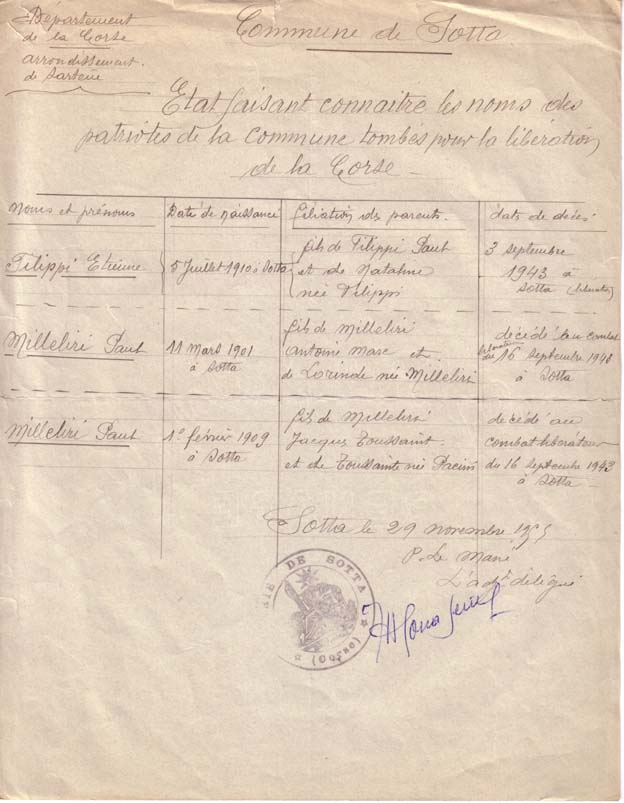 Département
de la Corse
arrondissement
de Sartène
Commune de Sotta
Etat faisant connaitre les noms des
patriotes de la commune tombés pour la libération
de la Corse
Noms et prénoms
Date de Naissance
filiation des parents
date de décès
Filippi Etienne
5 Juillet 1910 à Sotta
fils de Filippi Paul
et de Natahne
née Filippi
3 septembre
1943 à
Sotta
Milleliri Paul
11 Mars 1901
à Sotta
fils de Milleliri
Antoine Marc et
de Lorinde née Milleliri
décédé au combat
du 16 septembre
à Sotta
Milleliri Paul
1e février 1909
à Sotta
fils de Milleliri
Jacques Toussaint
et de Toussainte née Pacini
décédé au
combat libérateur
du 16 septembre 1943
à Sotta
Sotta le 29 novembre 1955
P. Le Maire
L'adjt délégué
DE SOTTA
(Corse)